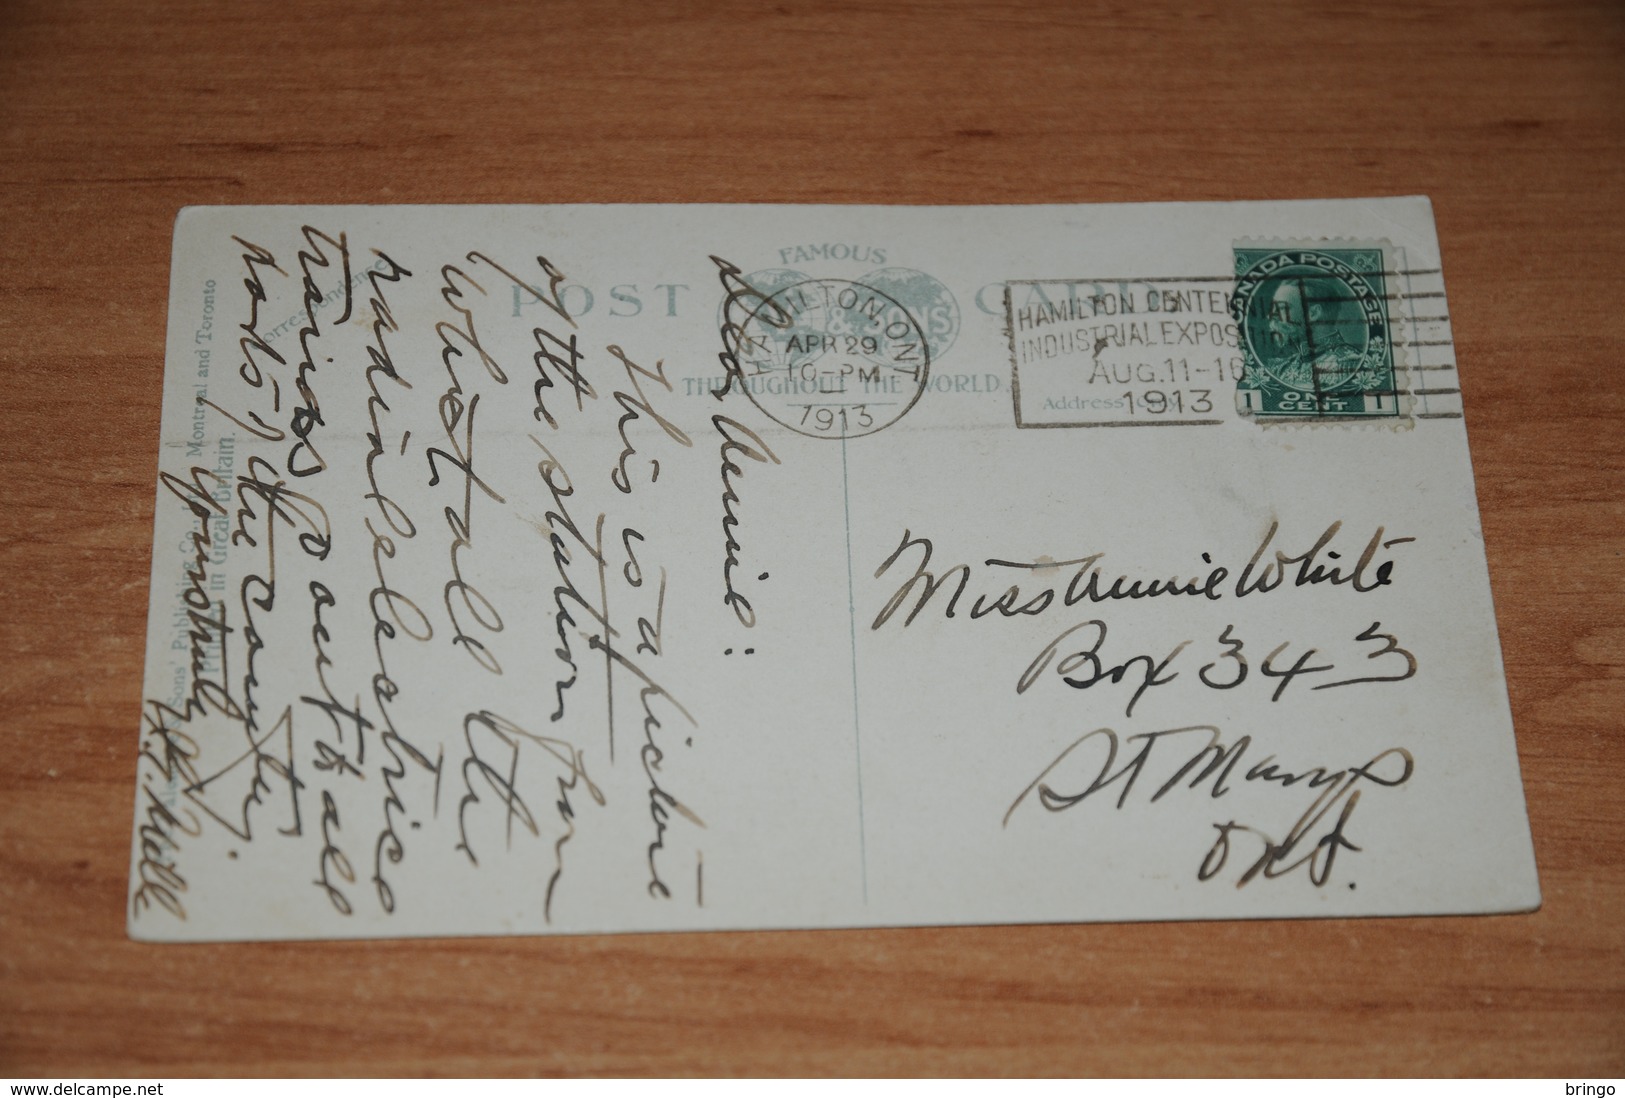 FAMOUS
POST CARD
& SONS
THROUGHOUT THE WORLD.
HAMILTON, ONT
APR 29
10-PM
1913
HAMILTON CENTENNIAL
INDUSTRIAL EXPOSITION
AUG. 11-16
1913
CANADA POSTAGE
1 ONE CENT 1
Address
Correspondence
Dear Annie:
This is a picture
of the station from
which all the
radial electric
trains go out to all
parts of the county.
Yours truly
Miss Annie White
Box 343
St Marys
Ont.
Sons' Publishing Co., Montreal and Toronto
Printed in Great Britain.
delcampe.net
bringo